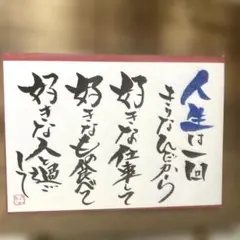 人生は一回
きりなんだから
好きな仕事して
好きなもの食べて
好きな人と過ご
して